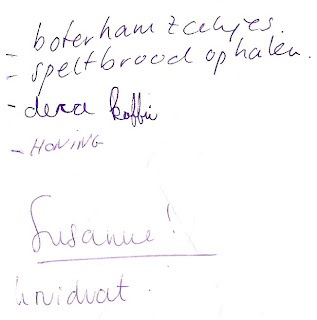 - boterhamzakjes.
- speltbrood ophalen.
- deca koffie
- HONING
Susanne!
kruidvat.